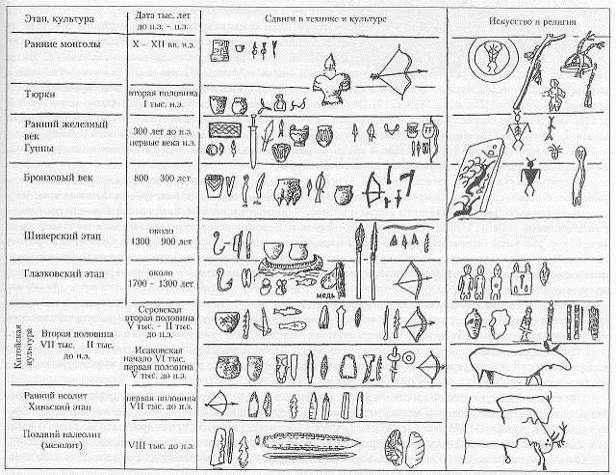 Этап, культура
Дата тыс. лет
до н.э. – н.э.
Сдвиги в технике и культуре
Искусство и религия
Ранние монголы
X – XII вв. н.э.
Тюрки
вторая половина
I тыс. н.э.
Ранний железный
век
Гунны
300 лет до н.э.
первые века н.э.
Бронзовый век
800 300 лет
Шиверский этап
около
1300 900 лет
Глазковский этап
около
1700 – 1300 лет
медь
Китойская
культура
Вторая половина
VII тыс. II тыс.
до н.э.
Серовская
вторая половина
V тыс. – II тыс.
до н.э.
Исаковская
начало VI тыс.
первая половина
V тыс. до н.э.
Ранний неолит
Хиньский этап
первая половина
VII тыс. до н.э.
Поздний палеолит
(мезолит)
VIII тыс. до н.э.